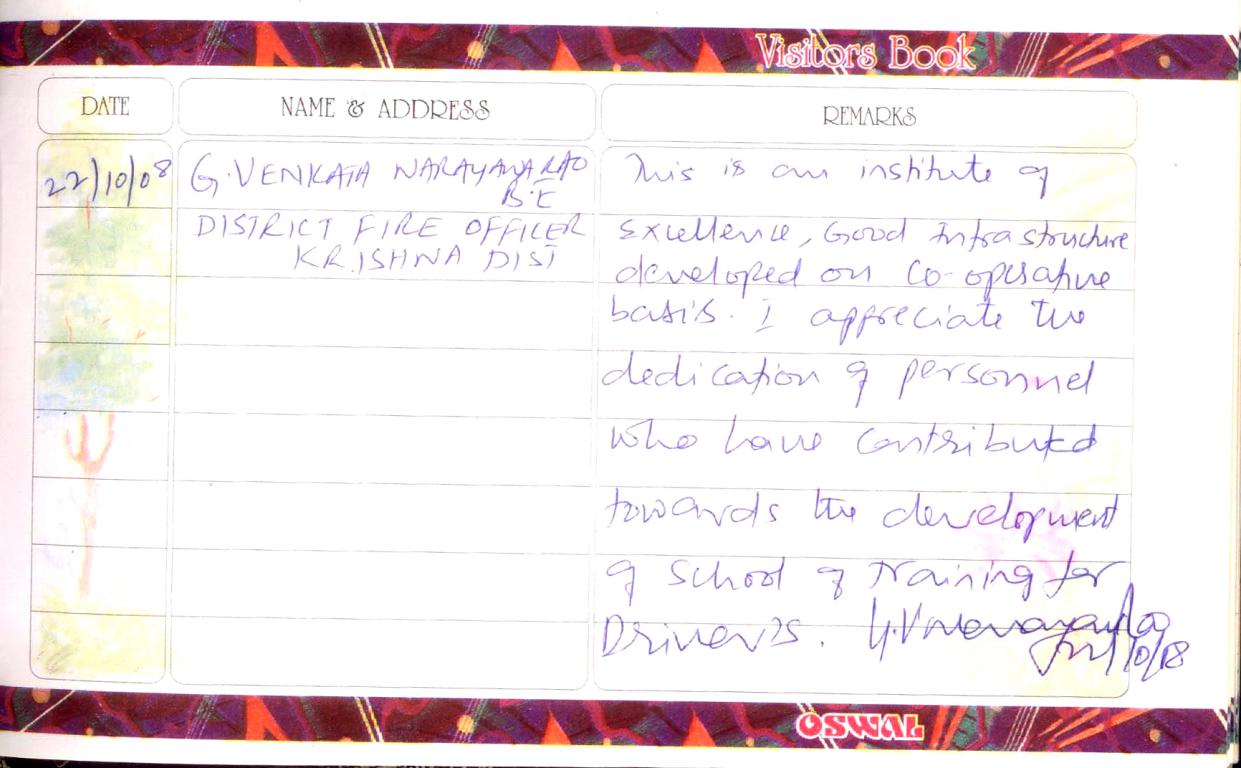 Visitors Book
DATE
NAME & ADDRESS
REMARKS
22/10/08
G. VENKATA NARAYANA RAO
B.E
DISTRICT FIRE OFFICER
KRISHNA DIST
This is an institute of
Excellence, Good Infrastructure
developed on Co-operative
basis. I appreciate the
dedication of personnel
who have contributed
towards the development
of School of Training for
Driver's.
OSWAL